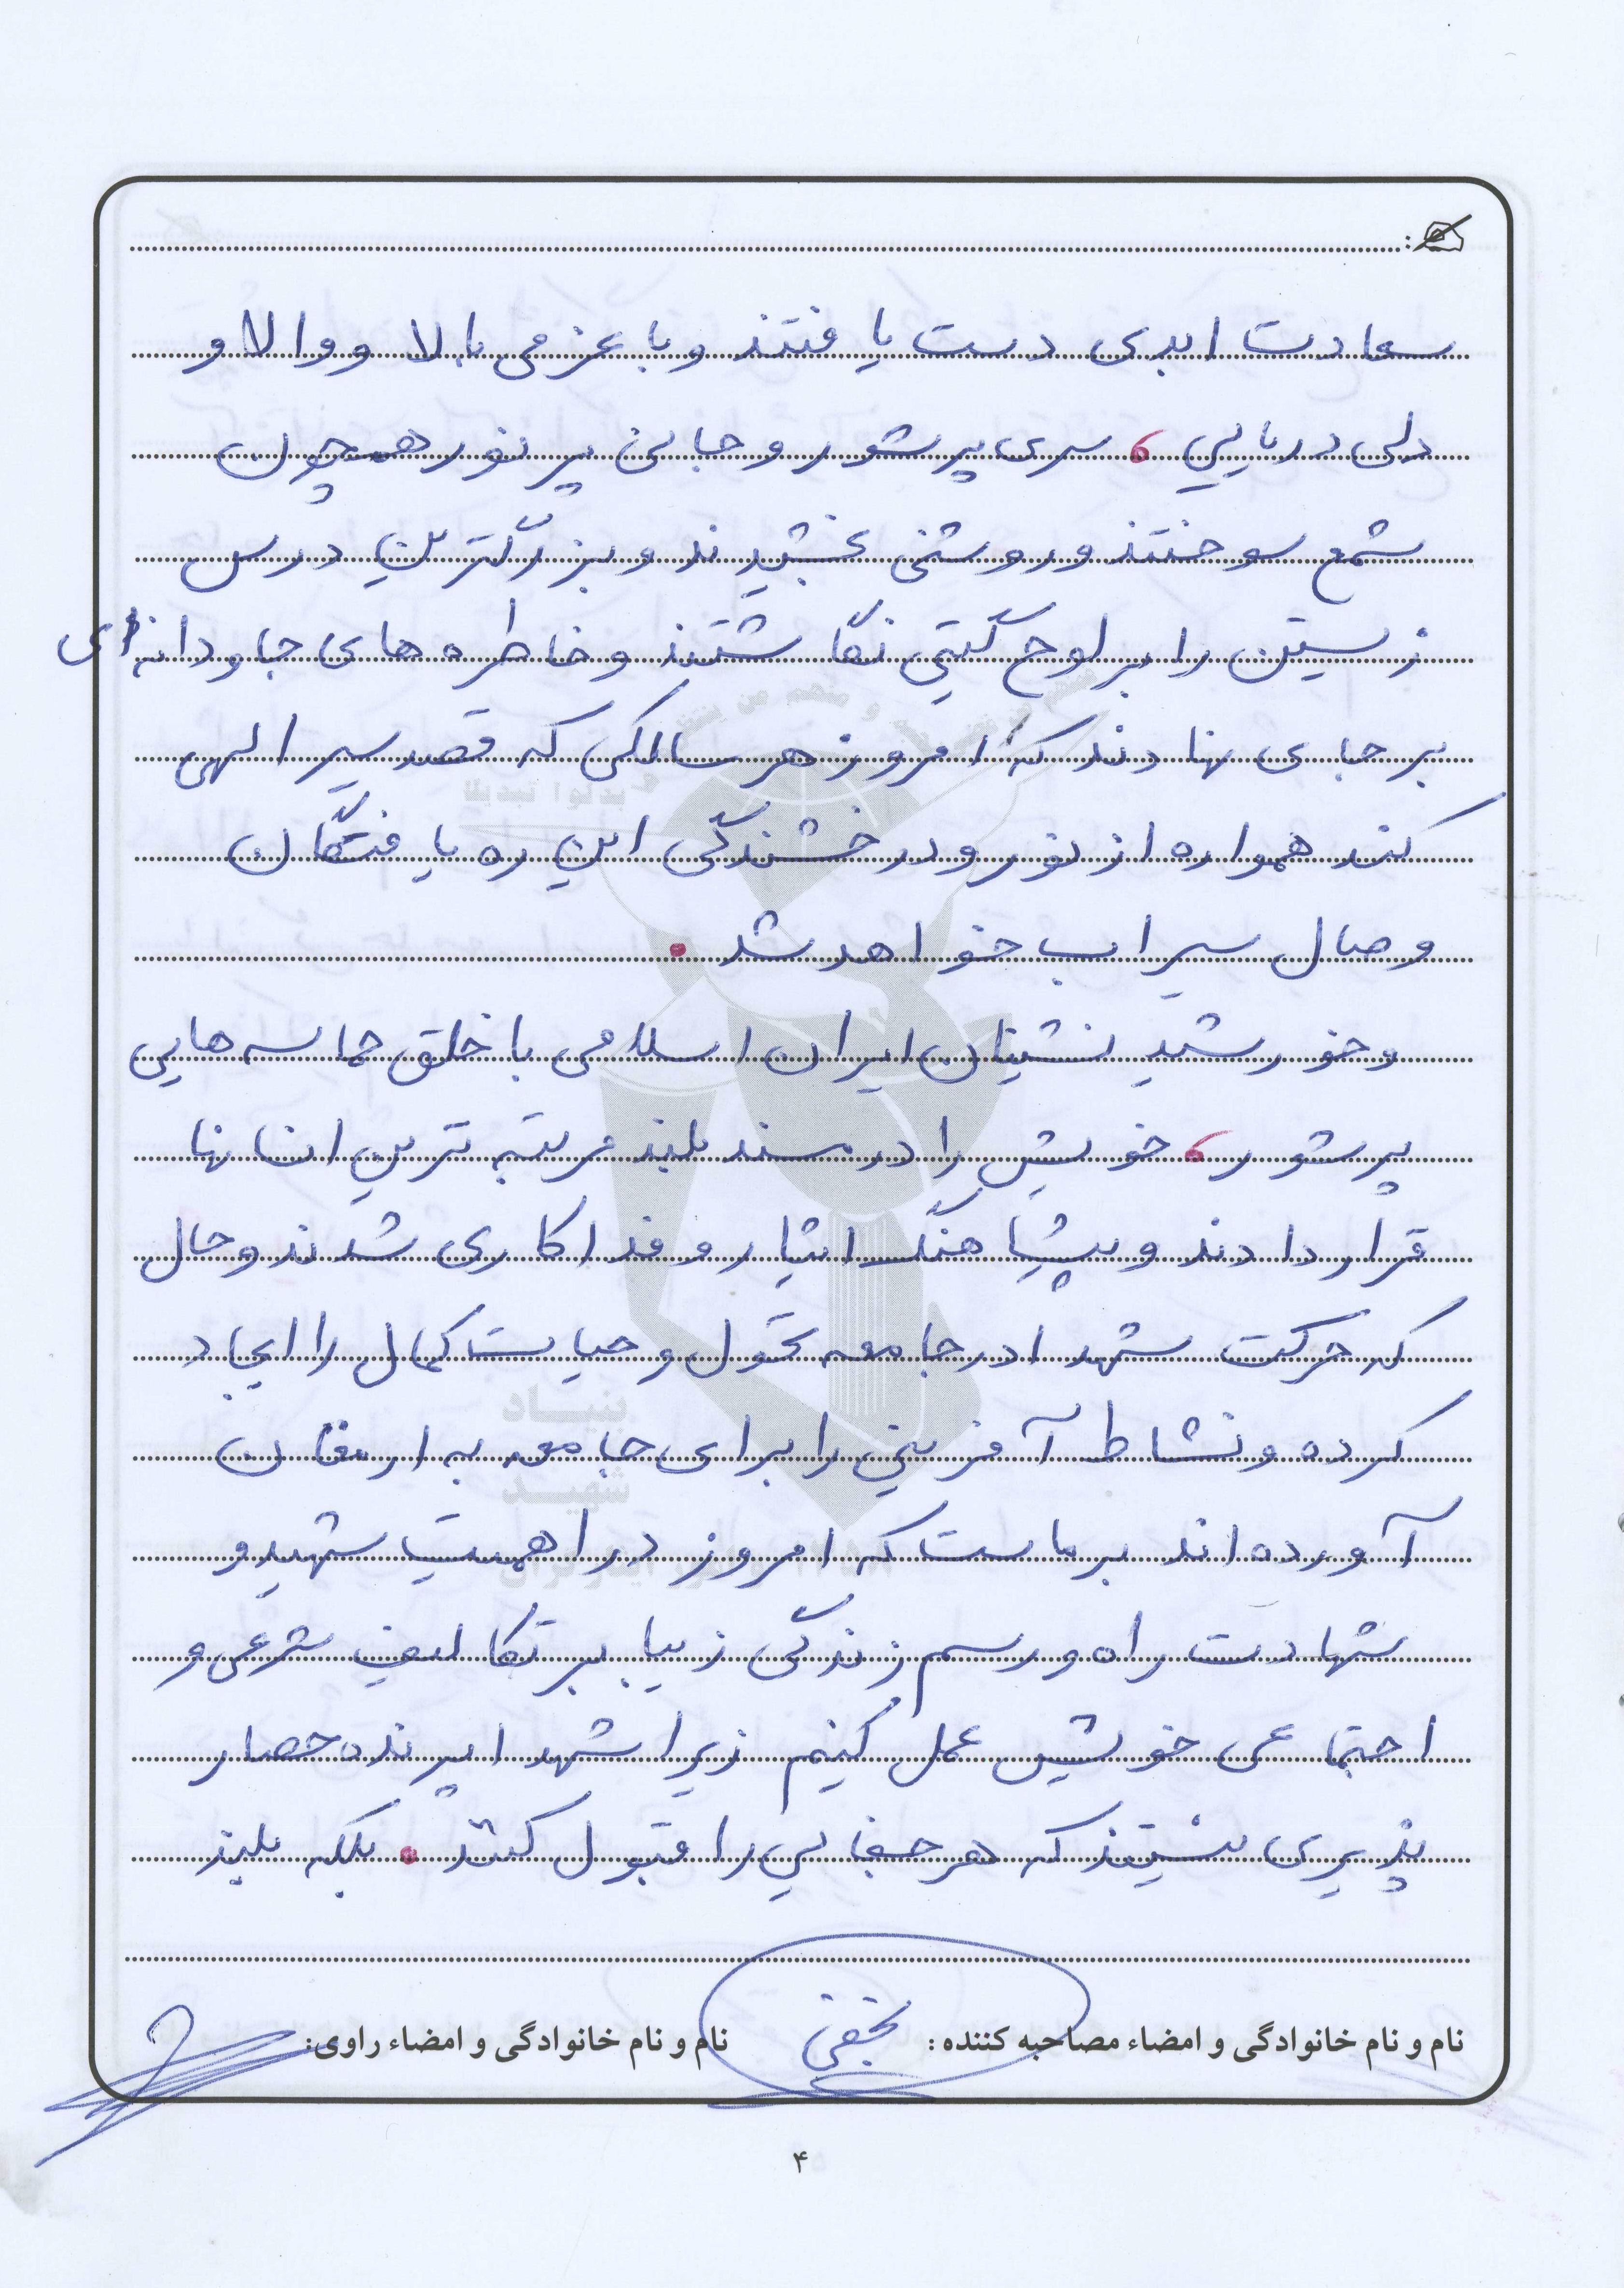 سعادت ابدی دست یافتند و با عزمی بالا و والا و
دلی دریایی، سری پرشور و جانی پر نور همچون
شمع سوختند و روشنی بخشیدند و بزرگترین درس
زیستن را بر لوح گیتی نگاشتند و خاطره های جاودانه ای
بر جای نهادند که امروز هر سالکی که قصد سیر الهی
کند همواره از نور و درخشندگی این ره یافتگان
وصال سیراب خواهد شد.
و خورشید نشینان ایران اسلامی با خلق حماسه هایی
پرشور، خویش را در مسند بلند مرتبه ترین انسانها
قرار دادند و پیشاهنگ ایثار و فداکاری شدند و حال
که حرکت شهدا در جامعه تحول و حیات کمال را ایجاد
کرده و نشاط آفرینی را برای جامعه به ارمغان
آورده اند بر ماست که امروز در اهمیت شهید و
شهادت راه و رسم زندگی زیبا بر تکالیف شرعی و
اجتماعی خویش عمل کنیم زیرا شهدا پرنده حصار
پذیری نیستند که هر جفایی را قبول کنند. بلکه بلند
نام و نام خانوادگی و امضاء مصاحبه کننده: نجفی
نام و نام خانوادگی و امضاء راوی:
۴